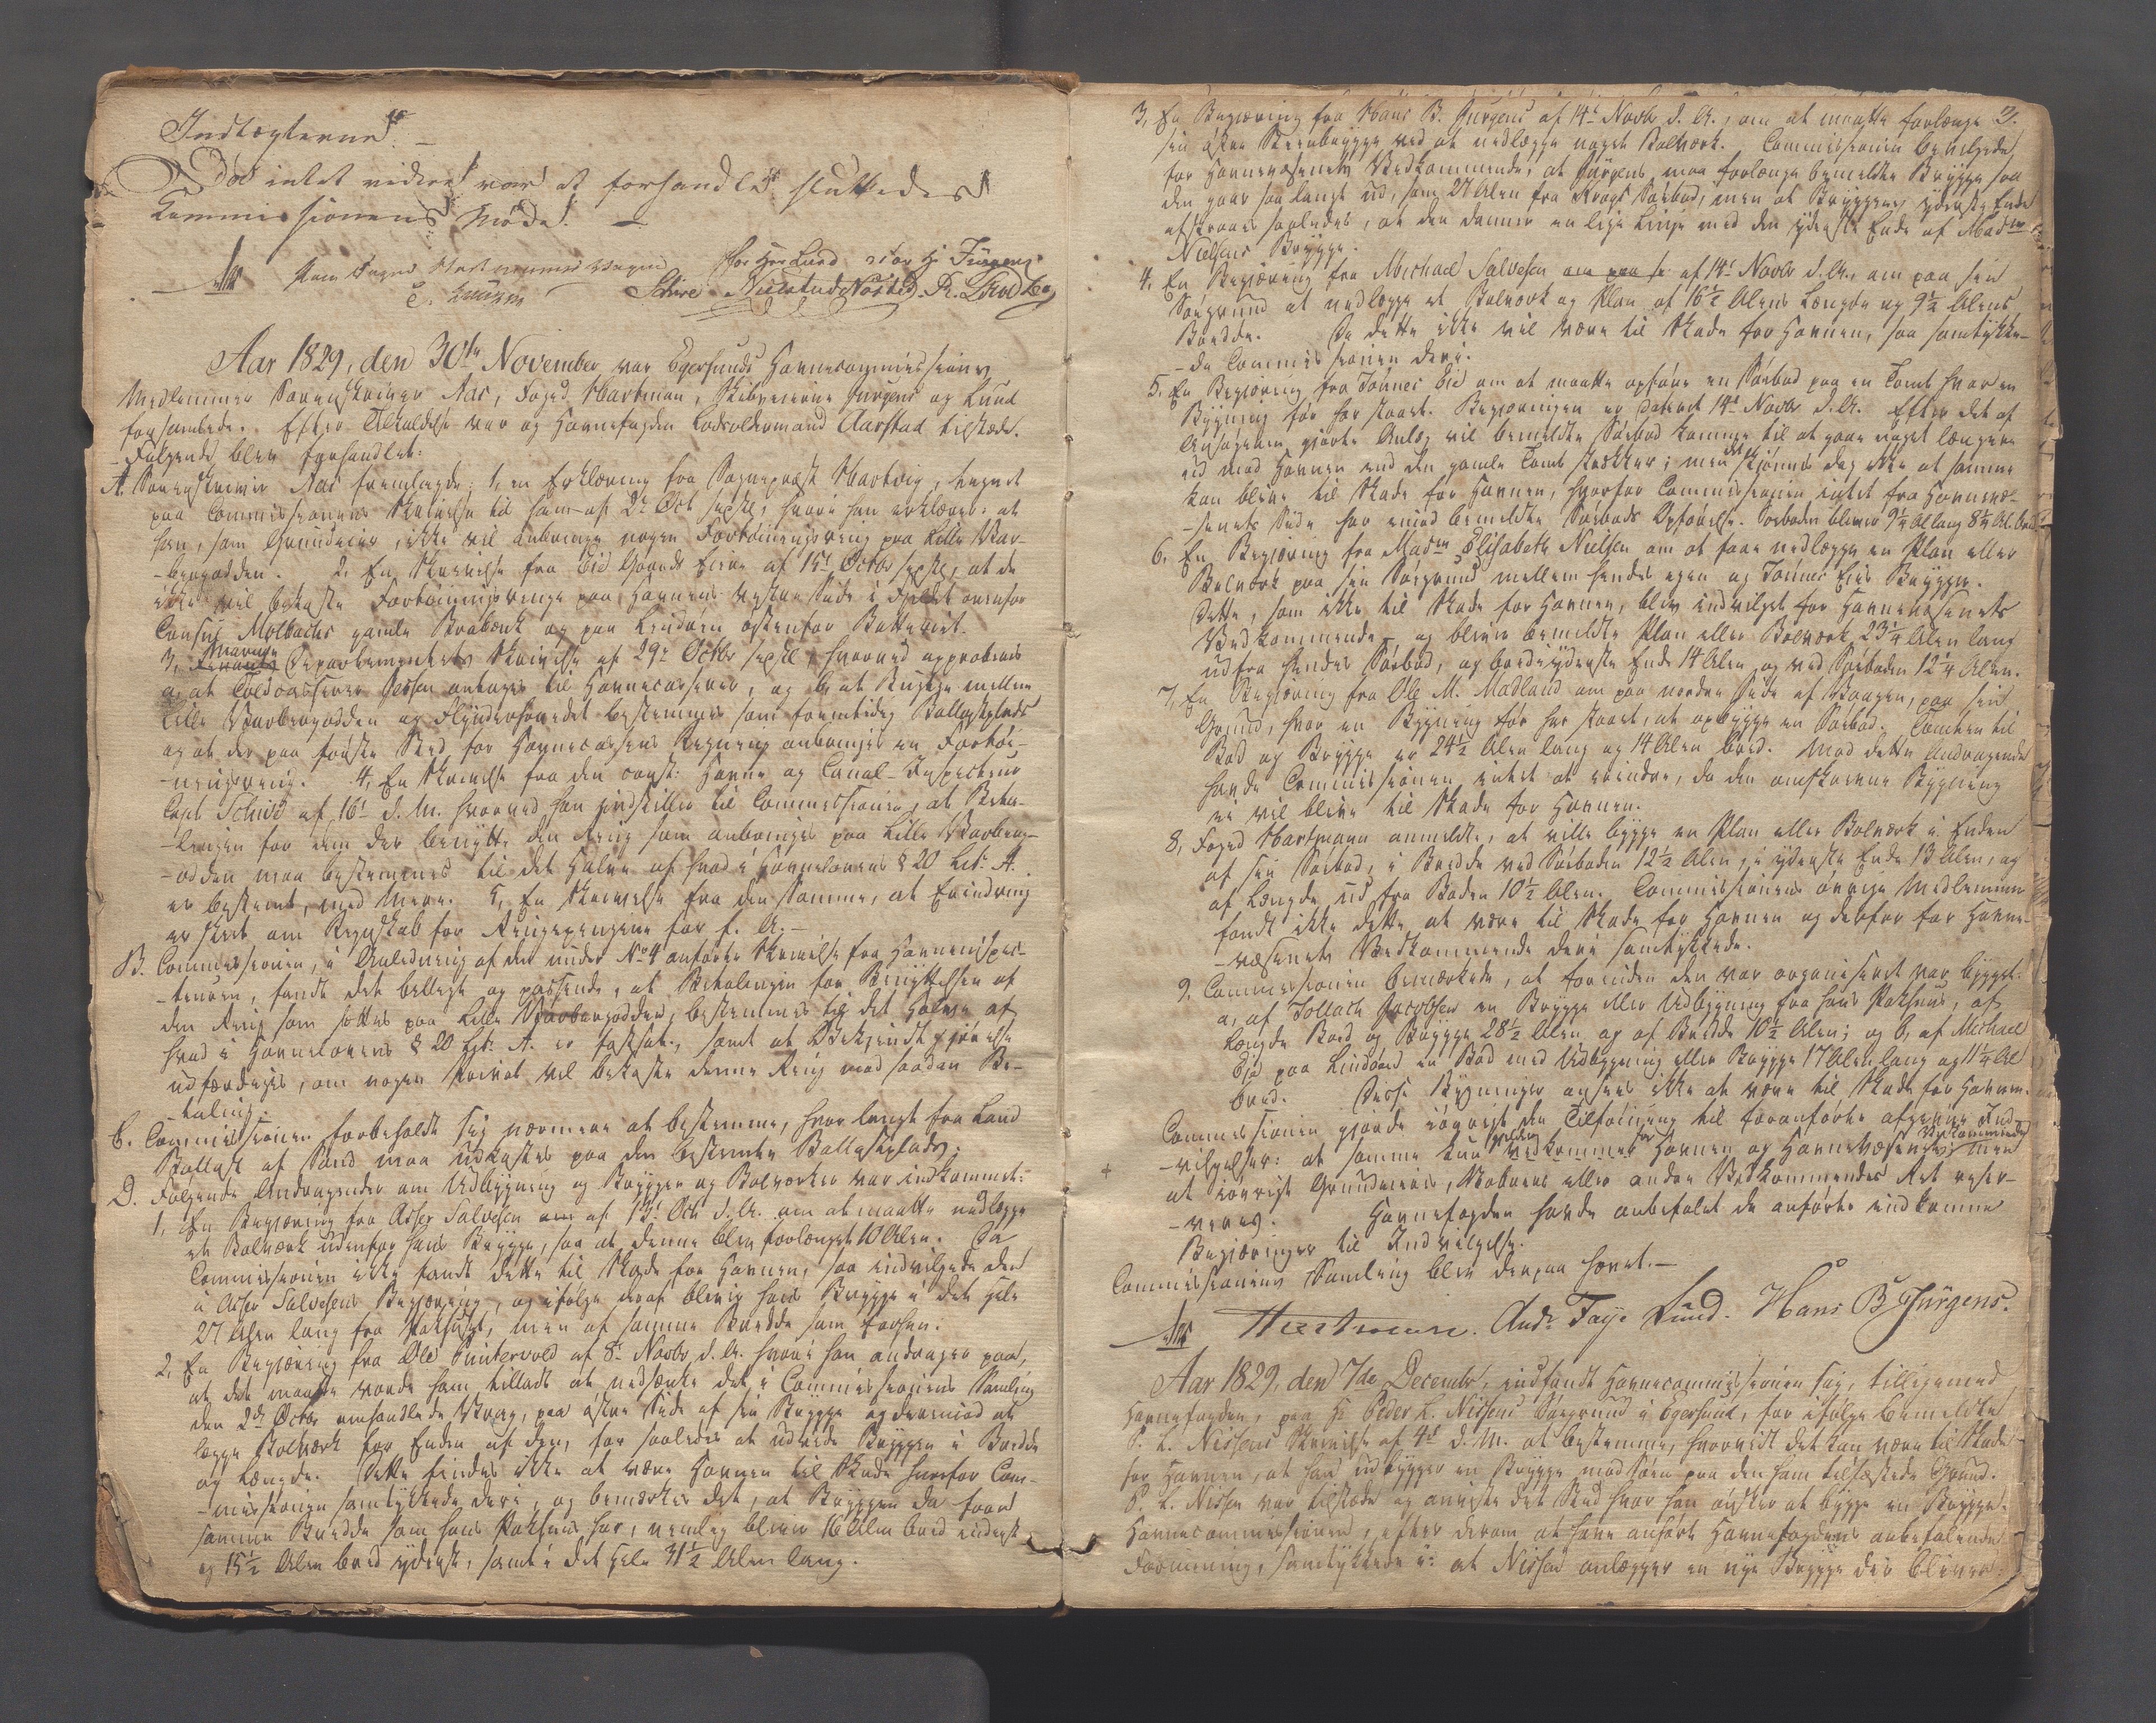 Indtægterne. –
Da intet videre var at forhandle sluttedes
Commissionens Møde. –
Aas
Schive
Aar 1829, den 30te November var Egersunds Havnecommissions
Medlemmer Sorenskriver Aas, Foged Hartman, Skibsreierne Jürgens og Lund
forsamlede. Efter Tilkaldelse var og Havnefogden Lodsoldermand Aarstad tilstæde.
Følgende blev forhandlet:
A. Sorenskriver Aas fremlagde: 1, en Erklæring fra Sognepræst Hartvig, tegnet
paa Commissionens Skrivelse til ham af 2d Oct sidstl., hvori han erklærer at
han, som Grundeier, ikke vil anbringe nogen Fortøiningsring paa Lille Var-
-bergodden. 2, En Skrivelse fra Eid Gaards Eiere af 15d Octbr sidstl., at de
ikke vil bekoste Fortøiningsringe paa Havnens vestre Side i Fjeldet ovenfor
Consul Mølbachs gamle Brabænk og paa Lindøen østenfor Batteriet.
3, Marine Departementets Skrivelse af 29d Octbr sidstl., hvorved approberes
a, at Toldcasserer Jessen antages til Havnecasserer, og b, at Bugten mellem
Lille Varbergodden og Flynderhovedet bestemmes som fremtidig Ballastplads
og at der paa første Sted, for Havnecassens Regning anbringes en Fortøi-
-ningsring. 4, En Skrivelse fra den const: Havne og Canal-Inspecteur
Capt Schive af 16d d. M. hvorved han indstiller til Commissionen, at Beta-
-lingen for dem der benytte den Ring som anbringes paa Lille Varberg-
-odden maa bestemmes til det Halve af hvad i Havnelovens § 20 Litr. A.
er bestemt, med Mere. 5, En Skrivelse fra den Samme, at Erindring
er skeet om Regnskab for Ringepengene for f. A. –
B. Commissionen, i Anledning af den under No 4 anførte Skrivelse fra Havneinspec-
-teuren, fandt det billigt og passende, at Betalingen for Benyttelsen af
den Ring som sættes paa Lille Varbergodden, bestemmes til det Halve af
hvad i Havnelovens § 20 Litr. A. er fastsat, samt at Bekjendtgjørelse
udfærdiges, om nogen Privat vil bekoste denne Ring mod saadan Be-
-taling.
C. Commissionen forbeholdt sig nærmere at bestemme, hvor langt fra Land
Ballast af Sand maa udkastes paa den bestemte Ballastplads.
D. Følgende Andragender om Udbygning og Brygger og Bolværker var indkommet:
1, En Begjæring fra Asser Salvesen af 13d Oct d. A. om at maatte nedlægge
et Bolværk udenfor hans Brygge, saa at denne blev forlænget 10 Alen. Da
Commissionen ikke fandt dette til Skade for Havnen, saa indvilgede den
i Asser Salvesens Begjæring, og ifølge deraf bliver hans Brygge i det Hele
27 Alen lang fra Pakhuset, men af samme Bredde som forhen.
2, En Begjæring fra Ole Puntervold af 8d Novbr d. A. hvori han andrager paa,
at det maatte vorde ham tilladt at nedsænke det i Commissionens Samling
den 2d Octbr omhandlede Vrag, paa østre Side af sin Brygge og derimod at
lægge Bolværk for Enden af den, for saaledes at udvide Bryggen i Bredde
og Længde. Dette findes ikke at være Havnen til Skade hvorfor Com-
-missionen samtykkede deri, og bemærkes det, at Bryggen da faaer
samme Bredde som hans Pakhuus har, nemlig bliver 16 Alen bred inderst
og 15½ Alen bred yderst, samt i det Hele 31½ Alen lang.
3, En Begjæring fra Hans B. Jürgens af 14d Novbr d. A., om at maatte forlænge
sin østre Steenbrygge ved at nedlægge noget Bolværk. Commissionen bevilgede
for Havnevæsenets Vedkommende, at Jürgens maa forlænge bemeldte Brygge saa
den gaar saa langt ud, som 27 Alen fra Krags Søebod, men at Bryggens yderste Ende
afskraaes saaledes, at den danner en lige Linje med den yderste Ende af Madm
Nielsens Brygge.
4, En Begjæring fra Michael Salvesen af 14d Novbr d. A., om paa sin
Søegrund at nedlægge et Bolværk og Plan af 16½ Alens Længde og 9½ Alens
Bredde. Da dette ikke vil være til Skade for Havnen, saa samtykke-
-de Commissionen deri.
5, En Begjæring fra Tønnes Eie om at maatte opføre en Søebod paa en Tomt hvor en
Bygning før har staaet. Begjæringen er dateret 14d Novbr d. A. Efter det af
Ansøgeren gjorte Anlæg vil bemeldte Søebod komme til at gaae noget længere
ud mod Havnen end den gamle Tomt strækker; men det skjønnes dog ikke at samme
kan blive til Skade for Havnen, hvorfor Commissionen intet fra Havnevæ-
-senets Side har imod bemeldte Søebods Opførelse. Søeboden bliver 9¼ Al lang 8¼ Al. bred
6, En Begjæring fra Madm Elisabeth Nielsen om at faae nedlægge en Plan eller
Bolværk paa sin Søegrund mellem hendes egen og Tønnes Eies Brygger.
Dette, som ikke til Skade for Havnen, blev indvilget for Havnevæsenets
Vedkommende – og bliver bemeldte Plan eller Bolværk 23¼ Alen lang
ud fra hendes Søebod, og bred i yderste Ende 14 Alen og ved Søeboden 12¼ Alen.
7, En Begjæring fra Ole M. Madland om paa nordre Side af Vaagen, paa sin
Grund, hvor en Bygning før har staaet, at opbygge en Søebod. Tomten til
Bod og Brygge er 24½ Alen lang og 14 Alen bred. Mod dette Andragende
havde Commissionen intet at erindre, da den omskrevne Bygning
ei vil blive til Skade for Havnen.
8, Foged Hartmann anmeldte, at ville bygge en Plan eller Bolværk i Enden
af sin Søebod, i Bredde ved Søeboden 12½ Alen, i yderste Ende 13 Alen, og
af Længde ud fra Boden 10½ Alen. Commissionens øvrige Medlemmer
fandt ikke dette at være til Skade for Havnen og derfor for Havne-
-væsenets Vedkommende deri samtykkede.
9, Commissionen bemærkede, at forinden den var organiseret var bygget:
a, af Tollach Jacobsen en Brygge eller Udbygning fra hans Pakhuus, af
Længde Bod og Brygge 28½ Alen og af Bredde 10½ Alen; og b, af Michael
Eie paa Lindøen en Bod med Udbygning eller Brygge 17 Alen lang og 11¼ Al
bred. Disse Bygninger ansees ikke at være til Skade for Havnen.
Commissionen gjorde iøvrigt den Tilføining til foranførte afgivne Ind-
-vilgelser: at samme kun gjelder for Havnen og Havnevæsenets Vedkommende men
at iøvrigt Grundeiers, Naboers eller andre Vedkommendes Ret reser-
-veres. Havnefogden havde anbefalet de anførte indkomne
Begjæringer til Indvilgelse.
Commissionens Samling blev derpaa hævet. –
Aas Hartmann. Andr Faye Lund. Hans B Jürgens.
Aar 1829, den 7de Decembr, indfandt Havnecommissionen sig, tilligemed
Havnefogden, paa Hr Peder L. Nissens Søegrund i Egersund, for ifølge bemeldte
P. L. Nissens Skrivelse af 4d d. M. at bestemme, hvorvidt det kan være til Skade
for Havnen, at han udbygger en Brygge mod Søen paa den ham tilfæstede Grund.
P. L. Nissen var tilstæde og anviste det Sted hvor han ønsker at bygge en Brygge.
Havnecommissionen, efter derom at have anhørt Havnefogdens anbefalende
Formening, samtykkede i: at Nissen anlægger en nye Brygge der bliver